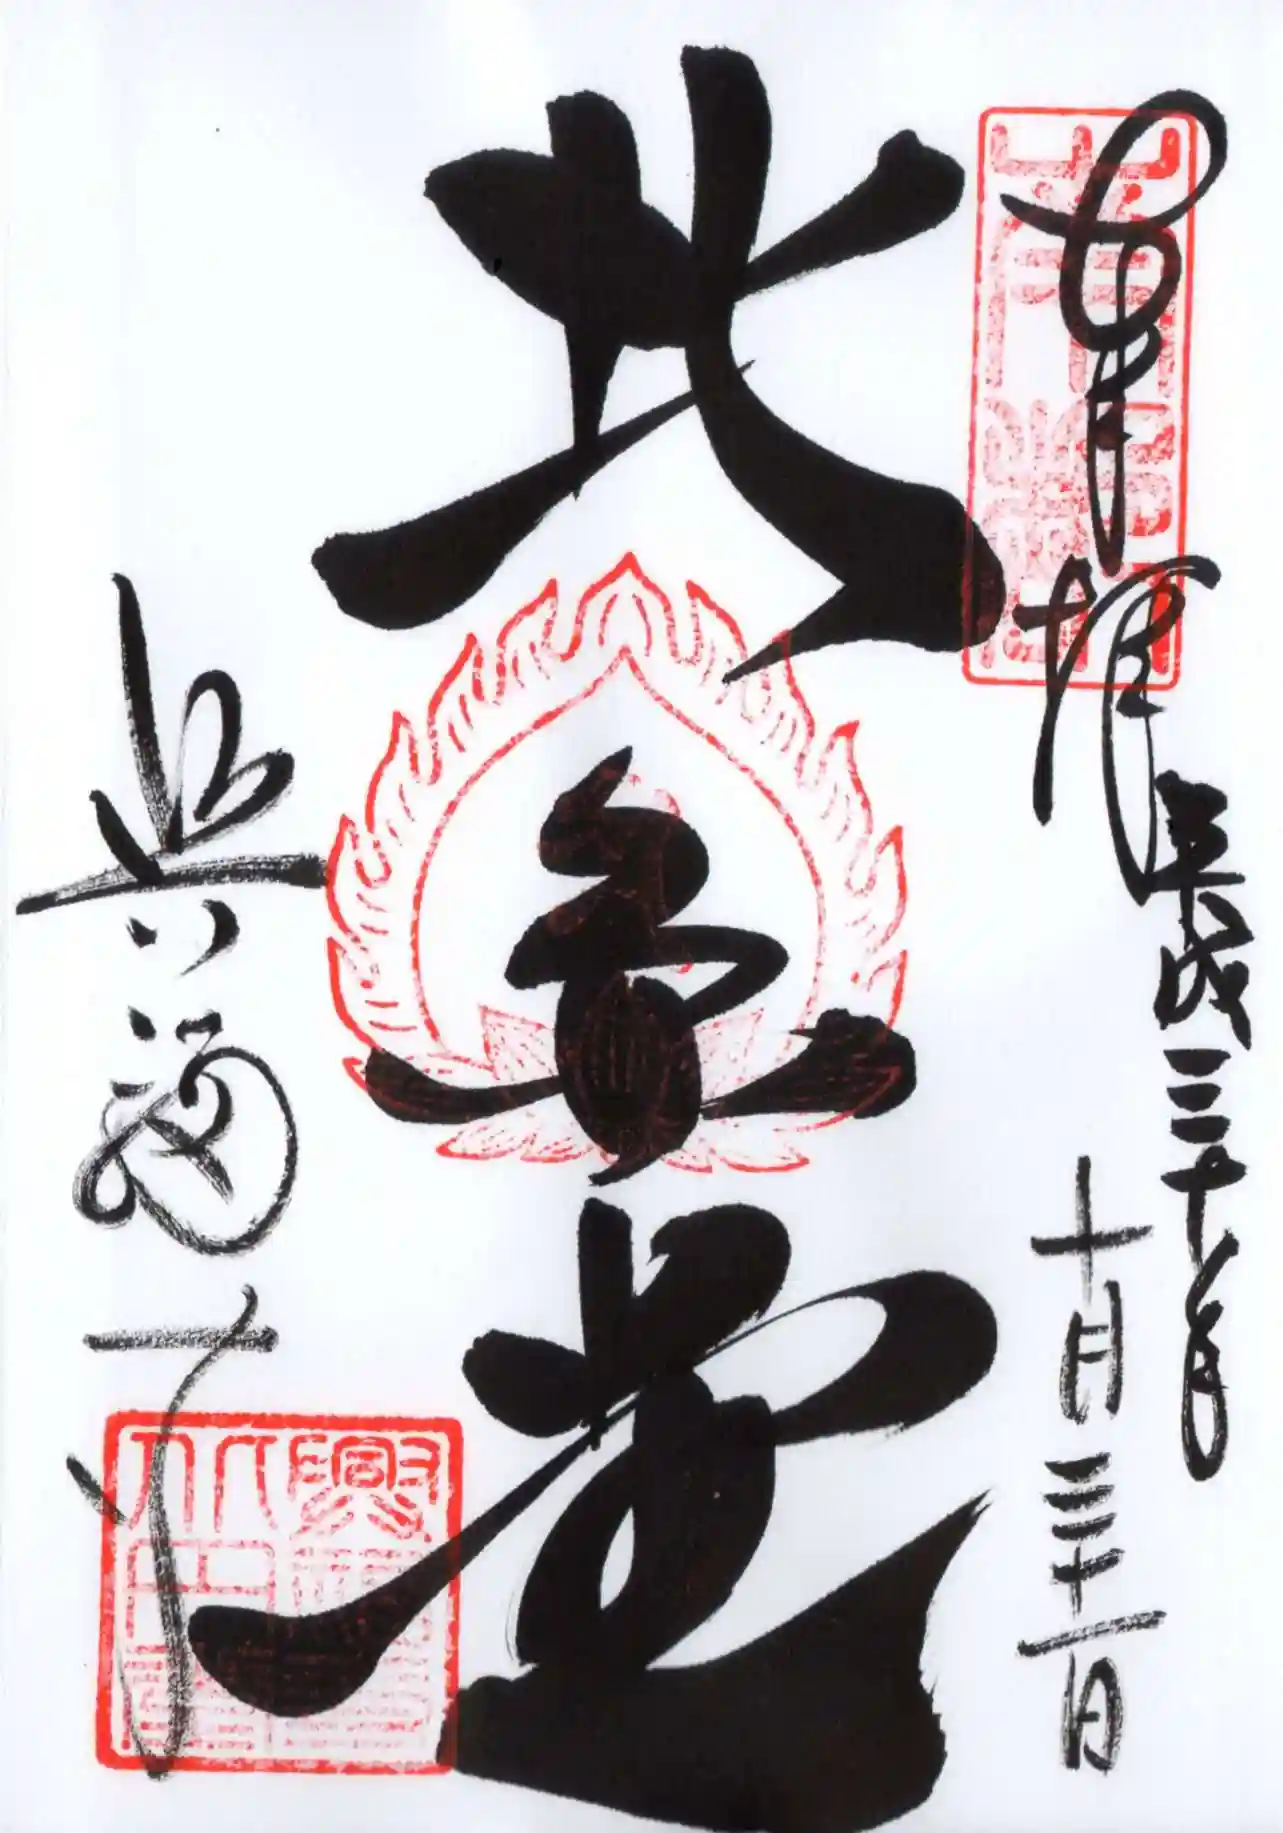 奉拝
平成三十年
十月三十一日
北圓堂
興福寺